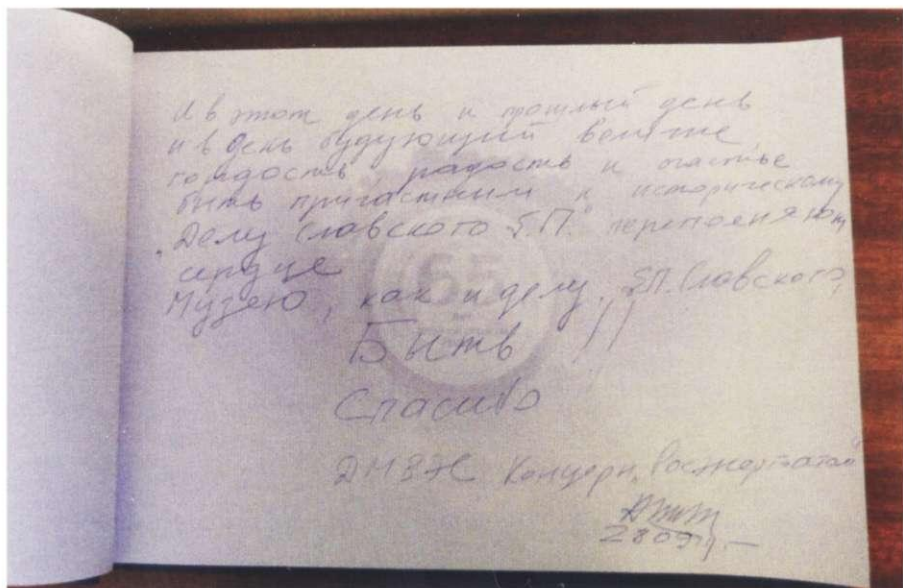 И в этот день и прошлый день
и в день будующий вам же
гордость радость и счастье
быть причастным к историческому
„Делу Славского Е.П." переполняют
сердце
Музею, как и делу, Е.П. Славского,
Быть
!!
Спасибо
65
Концерн „Росэнергоатом"
2809